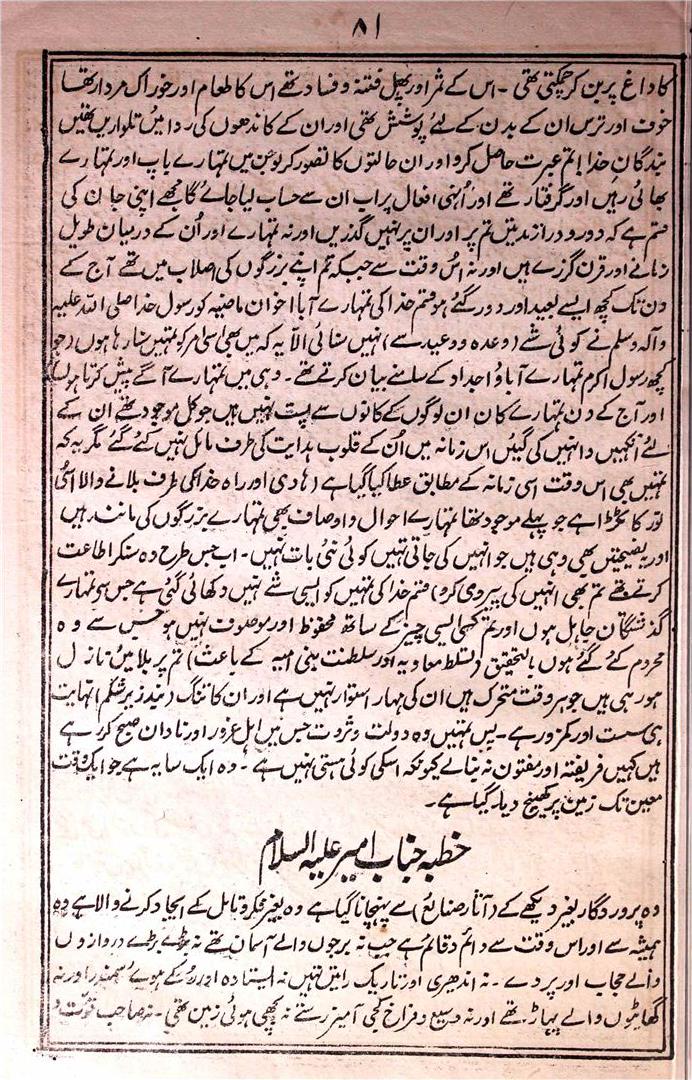 ۸۱
کا داغ پر بن کر چمکتی تھی ۔ اس کے ثمر اور پھل فتنہ و فساد تھے اس کا طعام اور خوراک مردار تھا
خوف اور ترس ان کے بدن کے لئے پوشش تھی اور ان کے کاندھوں کی ردا میں تلواریں تھیں
بندگان خدا! تم عبرت حاصل کرو اور ان حالتوں کا تصور کرو جن میں تمہارے باپ اور تمہارے
بھائی رہیں اور گرفتار تھے اور اُنہی افعال پر اب ان سے حساب لیا جائے گا مجھے اپنی جان کی
قسم ہے کہ دور و دراز مدتیں تم پر اور ان پر نہیں گذریں اور نہ تمہارے اور اُن کے درمیان طویل
زمانے اور قرن گزرے ہیں اور نہ اُس وقت سے جبکہ تم اپنے بزرگوں کی اصلاب میں تھے آج کے
دن تک کچھ ایسے بعید اور دور گئے ہو قسم خدا کی تمہارے آبا اخوان ماضیہ کو رسول خدا صلی اللہ علیہ
وآلہ وسلم نے کوئی شے (وعدہ و وعید سے) نہیں سنائی الّا یہ کہ میں بھی اسی امر کو تمہیں سنا رہا ہوں (جو
کچھ رسول اکرم تمہارے آباؤ اجداد کے سامنے بیان کرتے تھے ۔ وہی میں تمہارے آگے پیش کرتا ہوں)
اور آج کے دن تمہارے کان ان لوگوں کے کانوں سے پست نہیں ہیں جو کل موجود تھے ان کے
لئے آنکھیں وا نہیں کی گئیں اس زمانہ میں اُن کے قلوب ہدایت کی طرف مائل نہیں کئے گئے مگر یہ کہ
تمہیں بھی اس وقت اسی زمانہ کے مطابق عطا کیا گیا ہے (ہادی اور راہ خدا کی طرف بلانے والا اسی
نور کا ٹکڑا ہے جو پہلے موجود تھا تمہارے احوال و اوصاف بھی تمہارے بزرگوں کی مانند ہیں
اور نصیحتیں بھی وہی ہیں جو انہیں کی جاتی تہیں کوئی نئی بات نہیں ۔ اب جس طرح وہ سنکر اطاعت
کرتے تھے تم بھی انہیں کی پیروی کرو) قسم خدا کی تمہیں کو ایسی شے نہیں دکھائی گئی ہے جس سے تمہارے
گذشتگان جاہل ہوں اور تم کسی ایسی چیز کے ساتھ محفوظ اور موصوف نہیں ہو جس سے وہ
محروم کئے گئے ہوں بالتحقیق (تسلط معاویہ اور سلطنت بنی امیہ کے باعث) تم پر بلا میں نازل
ہو رہی ہیں جو ہر وقت متحرک ہیں ان کی مہار استوار نہیں ہے اور ان کا تنگ (بند زیر شکم) نہایت
ہی سست اور کمزور ہے ۔ پس تمہیں وہ دولت و ثروت جس میں اہل غرور اور نادان صبح کر رہے
ہیں کہیں فریفتہ اور مفتون نہ بنالے کیونکہ اسکی کوئی ہستی نہیں ہے ۔ وہ ایک سایہ ہے جو ایک وقت
معین تک زمین پر کھینچ دیا گیا ہے ۔
خطبہ جناب امیر علیہ السلام
وہ پروردگار بغیر دیکھے کے (آثار صنائع) سے پہچانا گیا ہے وہ بغیر فکر و تامل کے ایجاد کرنے والا ہے وہ
ہمیشہ سے اور اس وقت سے دائم و قائم ہے جب نہ برجوں والے آسمان تھے نہ بڑے بڑے دروازوں
والے حجاب اور پردے ۔ نہ اندھیری اور تاریک راتیں نہیں نہ ایستادہ اور رُکے ہوئے سمندر اور نہ
گھاٹیوں والے پہاڑ تھے اور نہ وسیع و فراخ کجی آمیز رستے نہ بچھی ہوئی زمین تھی ۔ نہ صاحب قوت و